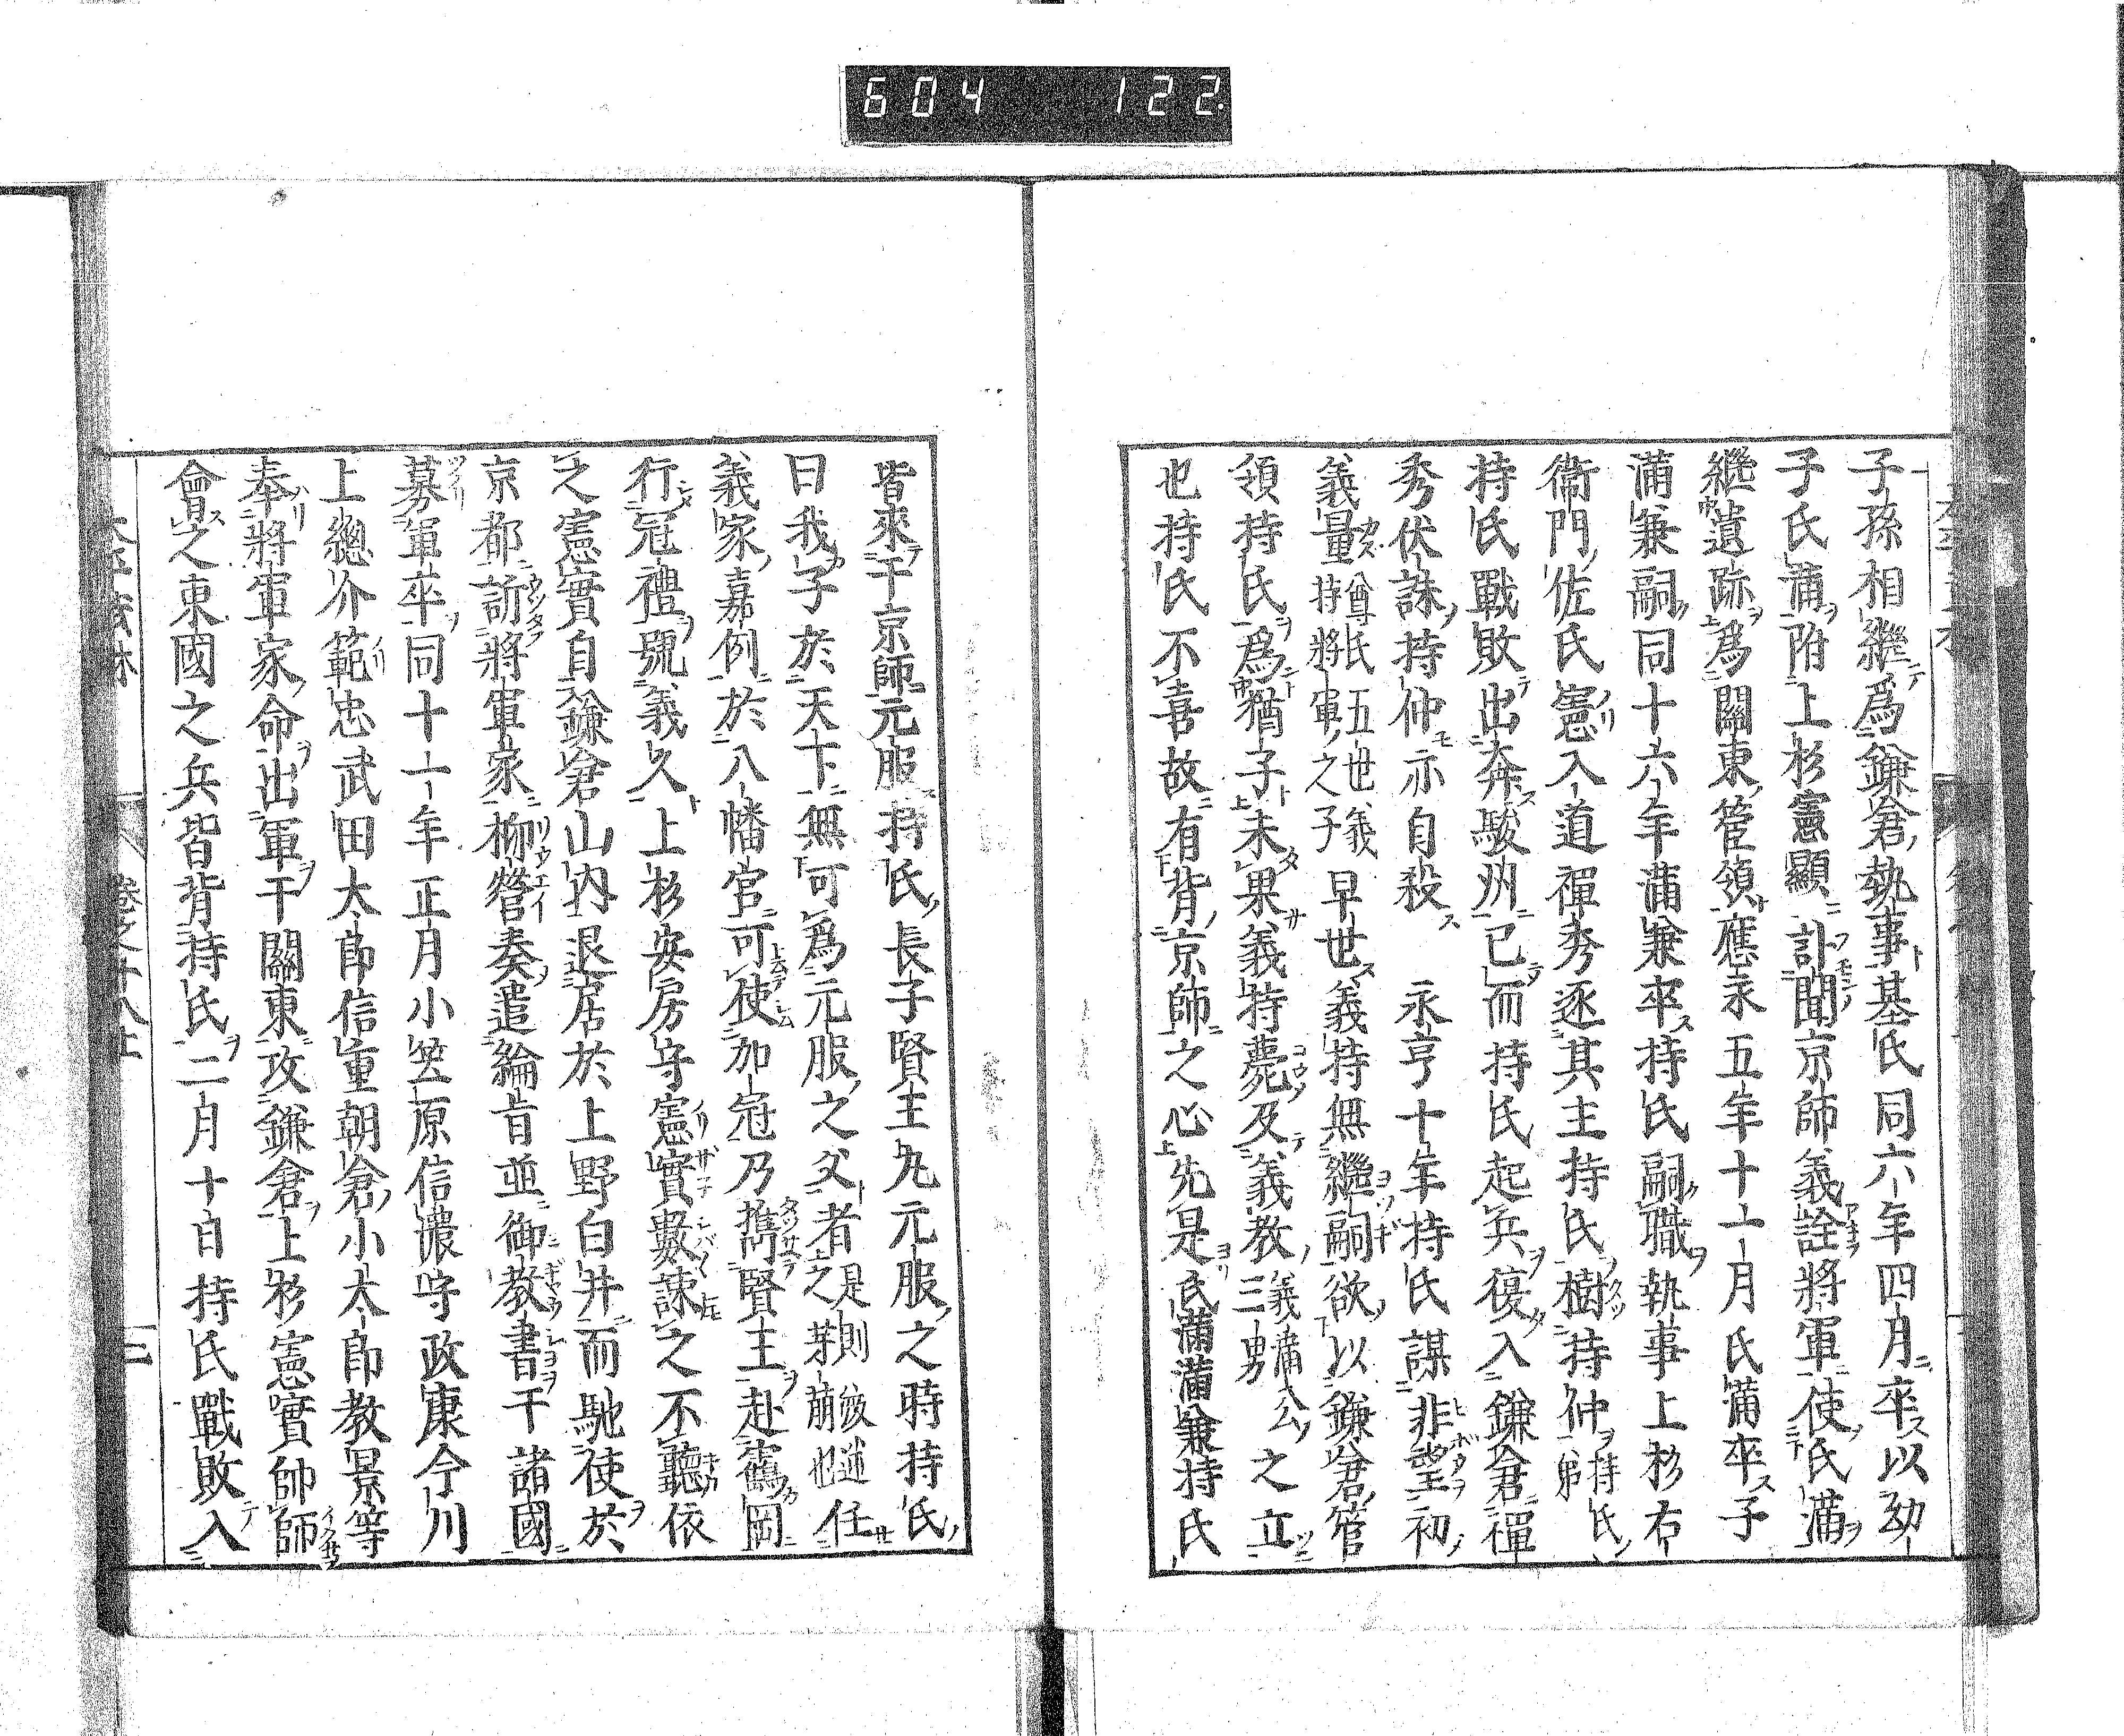 604 122
子孫相繼爲鎌倉執事基氏同六年四月卒以幼
子氏滿附上杉憲顯訃聞京師義詮將軍使氏滿
繼遺跡爲關東管領應永五年十一月氏滿卒子
滿兼嗣同十六年滿兼卒持氏嗣職執事上杉右
衞門佐氏憲入道禪秀逐其主持氏樹持仲持氏弟
持氏戰敗出奔駿州已而持氏起兵復入鎌倉禪
秀伏誅持仲亦自殺 永亨十年持氏謀非望初
義量尊氏五世義持將軍之子早世義持無繼嗣欲以鎌倉管
領持氏爲猶子未果義持薨及義教義滿公三男之立
也持氏不喜故有背京師之心先是氏滿滿兼持氏
皆來于京師元服持氏長子賢王丸元服之時持氏
曰我子於天下無可爲元服之父者是則之芽萠也任
義家嘉例於八幡宮可使加冠乃携賢王赴鶴岡
行冠禮號義久上杉安房守憲實數諫之不聽依
之憲實自鎌倉山内退居於上野白井而馳使於
京都訴將軍家柳營奏遣綸旨並御教書于諸國
募軍卒同十一年正月小笠原信濃守政康今川
上總介範忠武田太郎信重朝倉小太郎教景等
奉將軍家命出軍于關東攻鎌倉上杉憲實帥師
會之東國之兵皆背持氏二月十日持氏戰敗入
卷之十八上
二